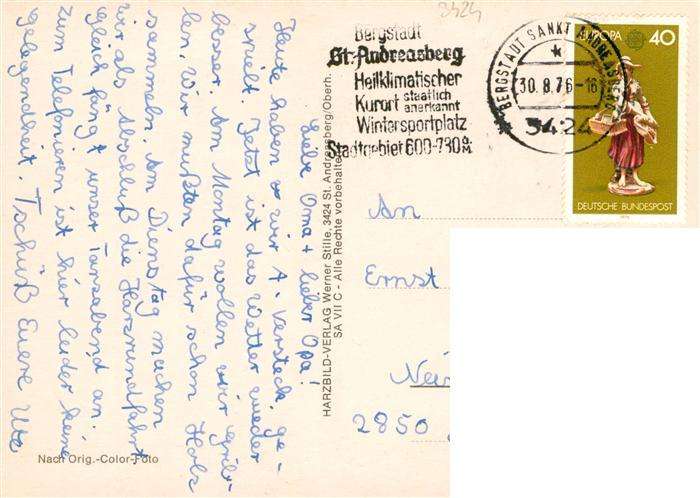 3424
Bergstadt
St. Andreasberg
Heilklimatischer
Kurort staatlich anerkannt
Wintersportplatz
Stadtgebiet 600-730 m
BERGSTADT SANKT ANDREASBERG
30.8.76-16
3424
EUROPA 40
DEUTSCHE BUNDESPOST
Liebe Oma + lieber Opa!
Heute haben wir A-Versteck ge-
spielt. Jetzt ist das Wetter wieder
besser. Am Montag wollen wir gril-
len. Wir mußten dafür schon Holz
sammeln. Am Dienstag machen
wir als Abschluß die Harzrundfahrt
Gleich fängt unser Tanzabend an.
Zum Telefonieren ist hier leider keine
Gelegenheit. Tschüß Euere Ute
HARZBILD-VERLAG Werner Stille, 3424 St. Andreasberg/Oberh.
SA VII C - Alle Rechte vorbehalten
An
Ernst
2850
Nach Orig.-Color-Foto